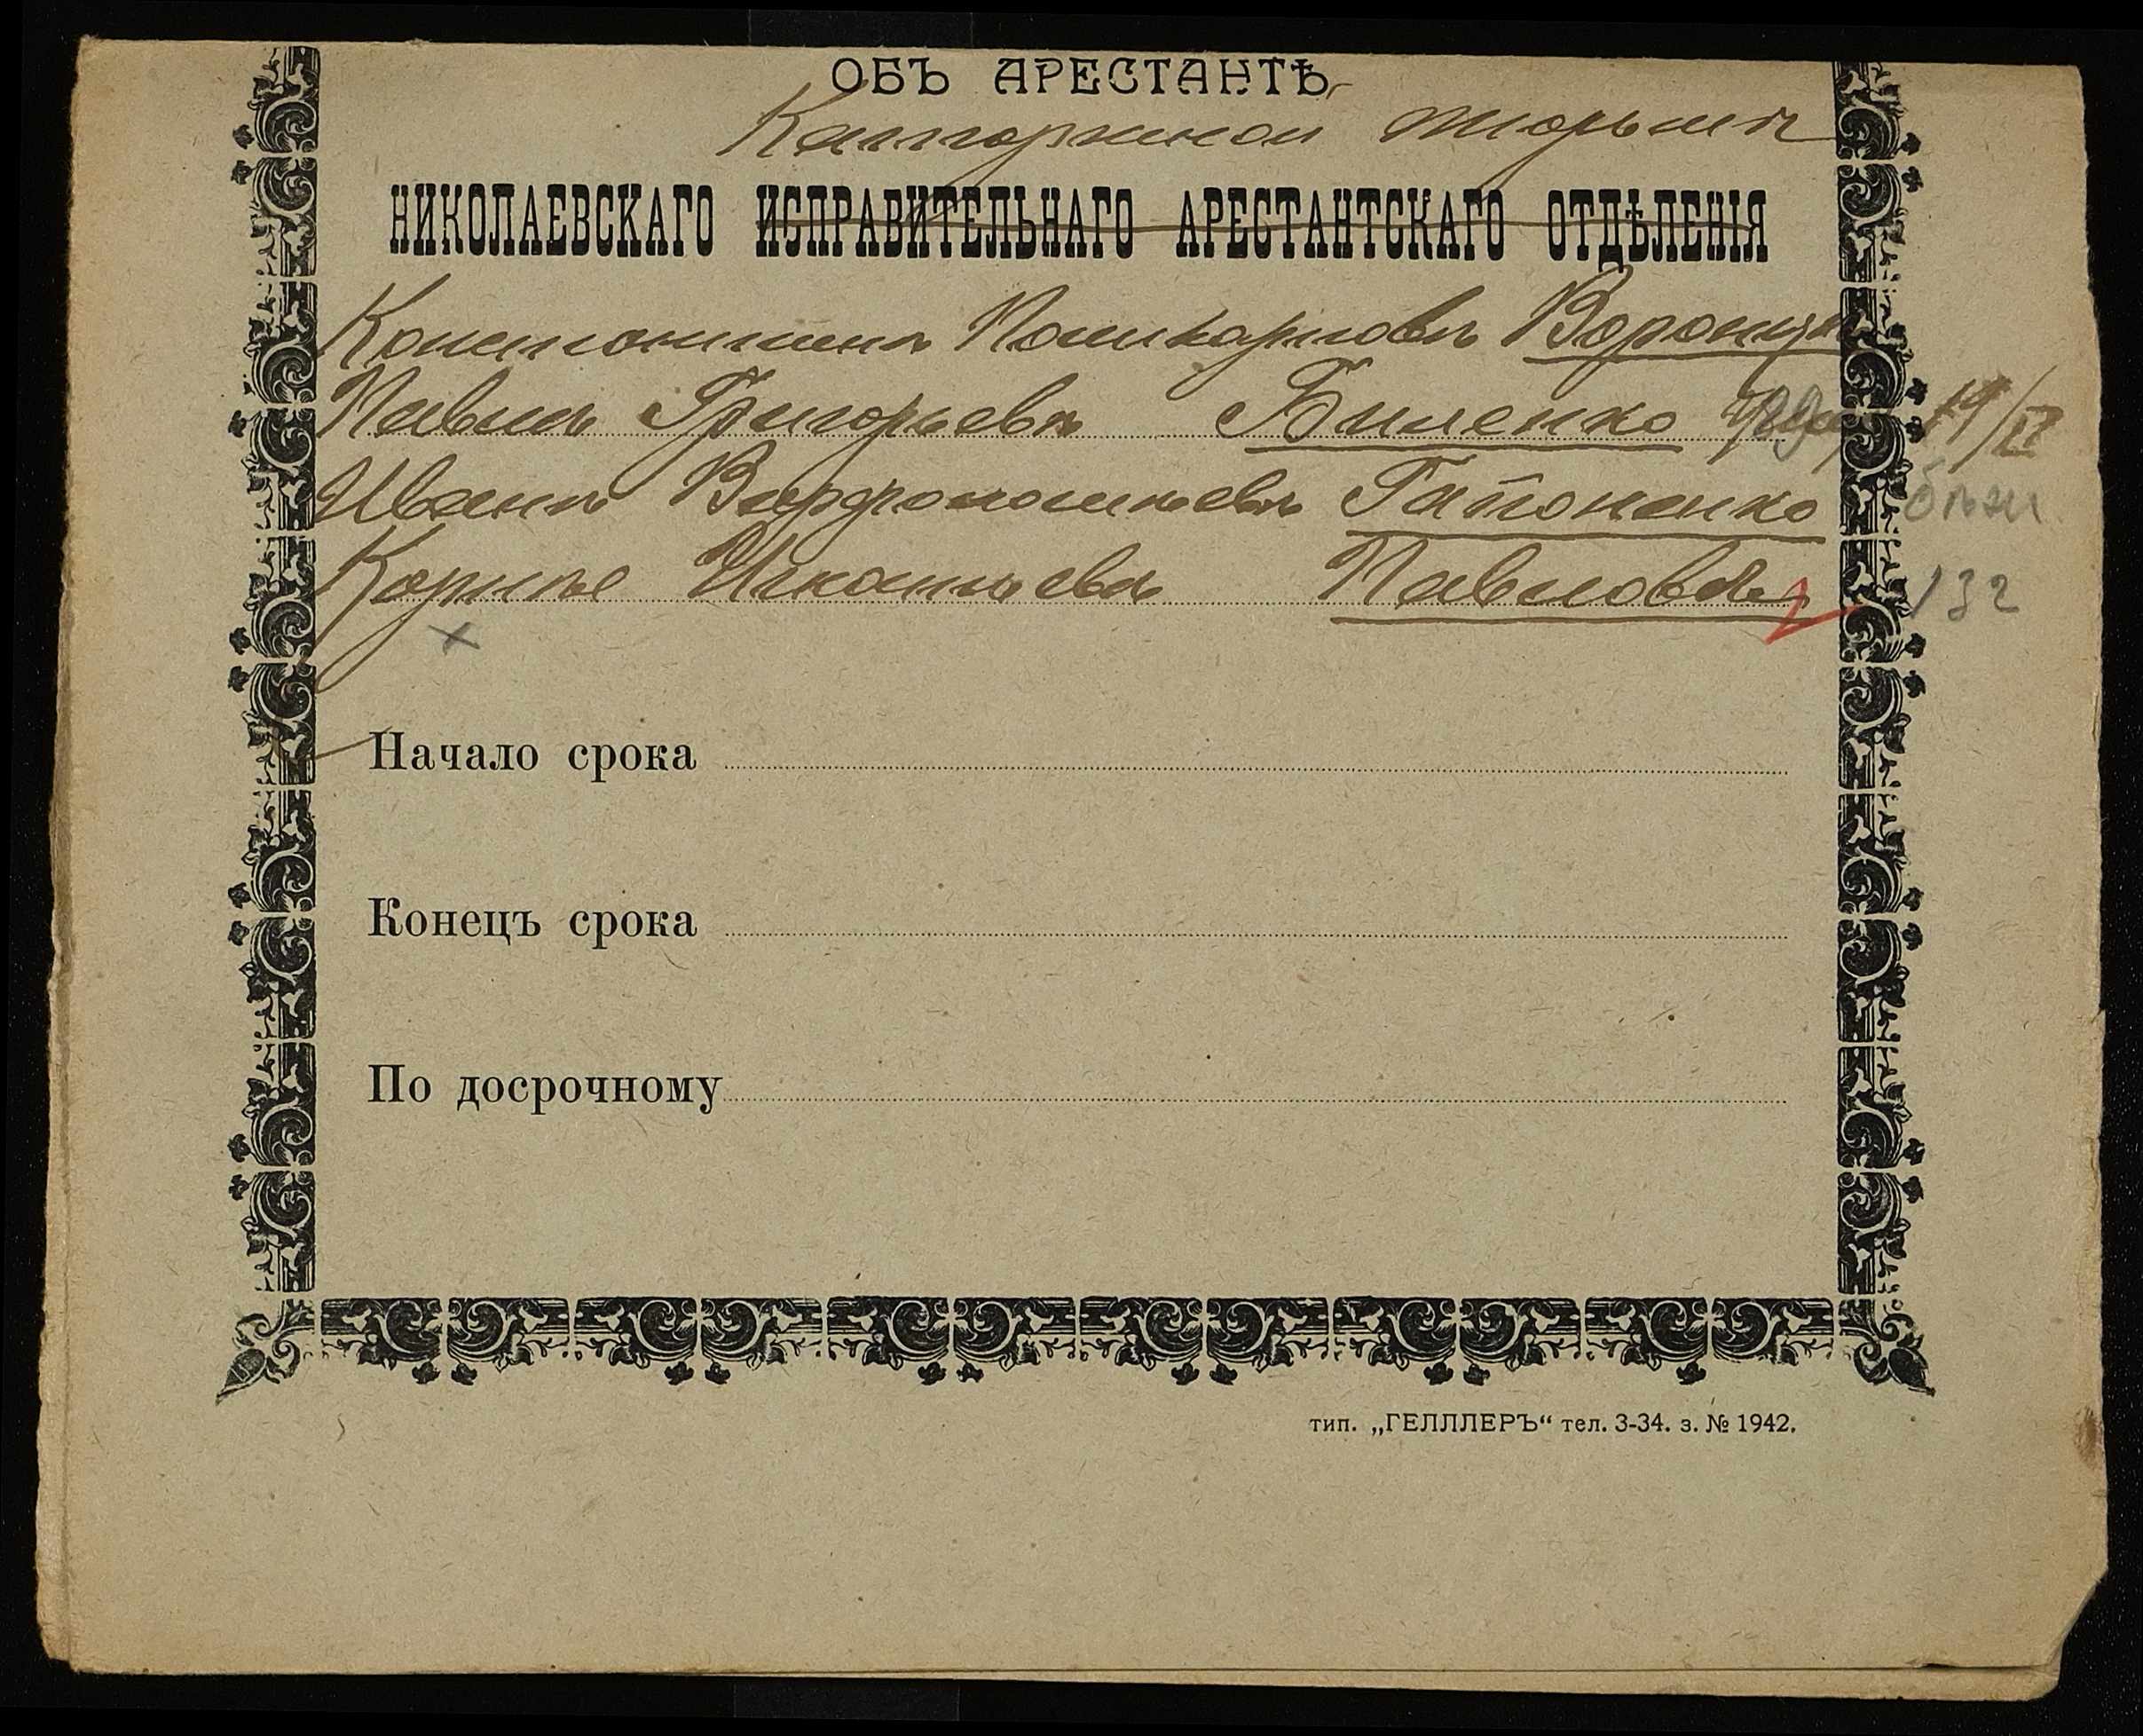 ОБЪ АРЕСТАНТѢ
Каторжной тюрьмѣ
НИКОЛАЕВСКАГО ИСПРАВИТЕЛЬНАГО АРЕСТАНТСКАГО ОТДѢЛЕНІЯ
Константинъ Поликарповъ
Павелъ Григорьевъ Биленко 19/II
Иванъ Варфоломеевъ Гапоненко бѣж
Корнѣе Игнатьевъ Павловъ 132
Начало срока
Конецъ срока
По досрочному
тип. „ГЕЛЛЛЕРЪ“ тел. 3-34. з. № 1942.